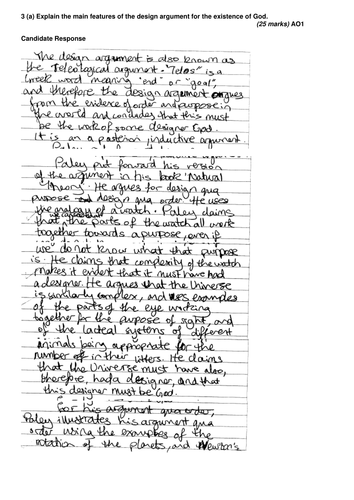 3 (a) Explain the main features of the design argument for the existence of God.
(25 marks) AO1
Candidate Response
The design argument is also known as
the Teleological argument. "Telos" is a
Greek word meaning "end" or "goal",
and therefore the design argument argues
from the evidence of order and purpose in
the world and concludes that this must
be the work of some designer God.
It is an a posteriori, inductive argument
Paley put forward his version
of the argument in his book 'Natural
Theory'. He argues for design qua
purpose and design qua order. He uses
the analogy of a watch. Paley claims
that the parts of the watch all work
together towards a purpose, even if
we do not know what that purpose
is. He claims that complexity of the watch
makes it evident that it must have had
a designer. He argues that the Universe
is similarly complex, and uses examples
of the parts of the eye working
together for the purpose of sight, and
of the lacteal systems of different
animals being appropriate for the
number of in their litters. He claims
that the Universe must have also,
therefore, had a designer, and that
this designer must be God.
For his argument qua order,
Paley illustrates his argument qua
order using the examples of the
rotation of the planets, and Newton's